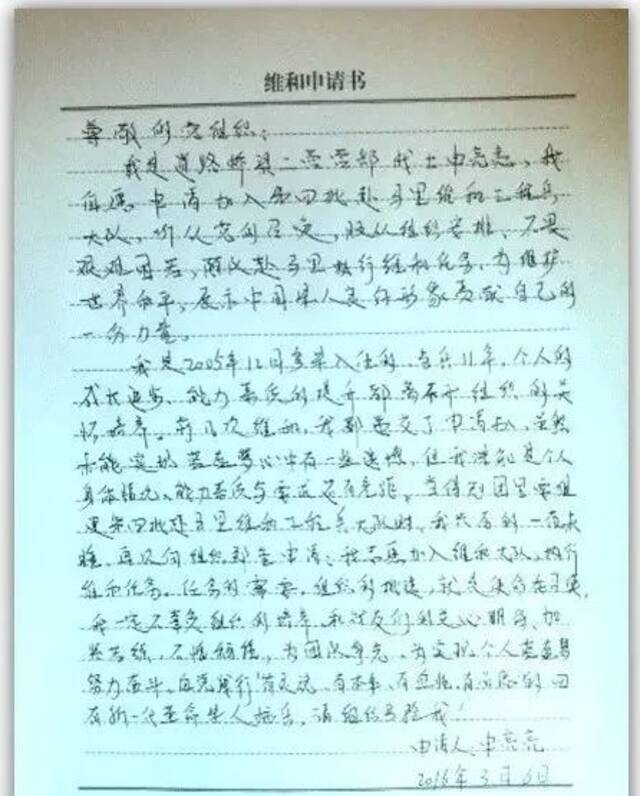 维和申请书
尊敬的党组织:
我是道路桥梁二营营部战士申亮亮,我
自愿申请加入第四批赴马里维和工程兵
大队,听从党的召唤,服从组织安排、不畏
艰难困苦,坚决赴马里执行维和任务,为维护
世界和平,展示中国军人良好形象贡献自己的
一份力量。
我是2005年12月参军入伍的,当兵11年,个人的
成长进步、能力素质的提升都离不开组织的关
怀培养。前几次维和,我都递交了申请书,虽然
未能实现 心中有一些遗憾,但我深知是个人
身体情况、能力素质与要求还有差距。当得知团里要组
建第四批赴马里维和工程兵大队时,我
再次向组织郑重申请:我志愿加入维和大队,执行
维和任务。任务的需要,组织的挑选,就是使命在召唤,
我一定不辜负组织的培养和战友们的关心期望、加
紧苦练,不惜 为团队争光,为实现个人
努力奋斗,自觉履行“有灵魂、有本事、有血性、有品德”的四
有新一代革命军人标兵,请组织考验我!
申请人:申亮亮
2016年3月6日